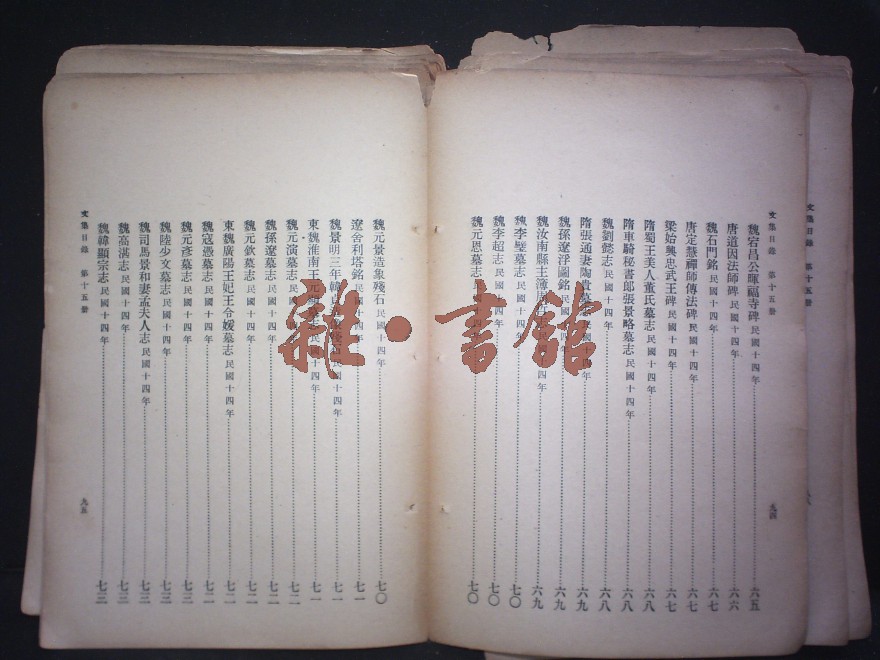 文集目錄 第十五册
魏宕昌公暉福寺碑民國十四年 六五
唐道因法師碑民國十四年 六六
魏石門銘民國十四年 六七
唐定慧禪師傳法碑民國十四年 六七
梁始興忠武王碑民國十四年 六七
隋蜀王美人董氏墓志民國十四年 六八
隋車騎秘書郎張景略墓志民國十四年 六八
魏劉懿志民國十四年 六八
隋張通妻陶貴墓志民國十四年 六九
魏孫遼浮圖銘民國十四年 六九
魏汝南縣主簿 六九
魏李璧墓志民國十四年 七〇
魏李超志民國十四年 七〇
魏元恩墓志民國十四年 七〇
九四
魏元景造象殘石民國十四年 七〇
遼舍利塔銘民國十四年 七一
魏景明三年韓 民國十四年 七一
東魏淮南王元 墓志民國十四年 七一
魏元演墓志民國十四年 七二
魏孫遼墓志民國十四年 七二
魏元欽墓志民國十四年 七二
東魏廣陽王妃王令媛墓志民國十四年 七二
魏寇憑墓志民國十四年 七二
魏元彥墓志民國十四年 七三
魏陸少文墓志民國十四年 七三
魏司馬景和妻孟夫人志民國十四年 七三
魏高湛志民國十四年 七三
魏韓顯宗志民國十四年 七三
文集目錄 第十五册
九五
雜·書館